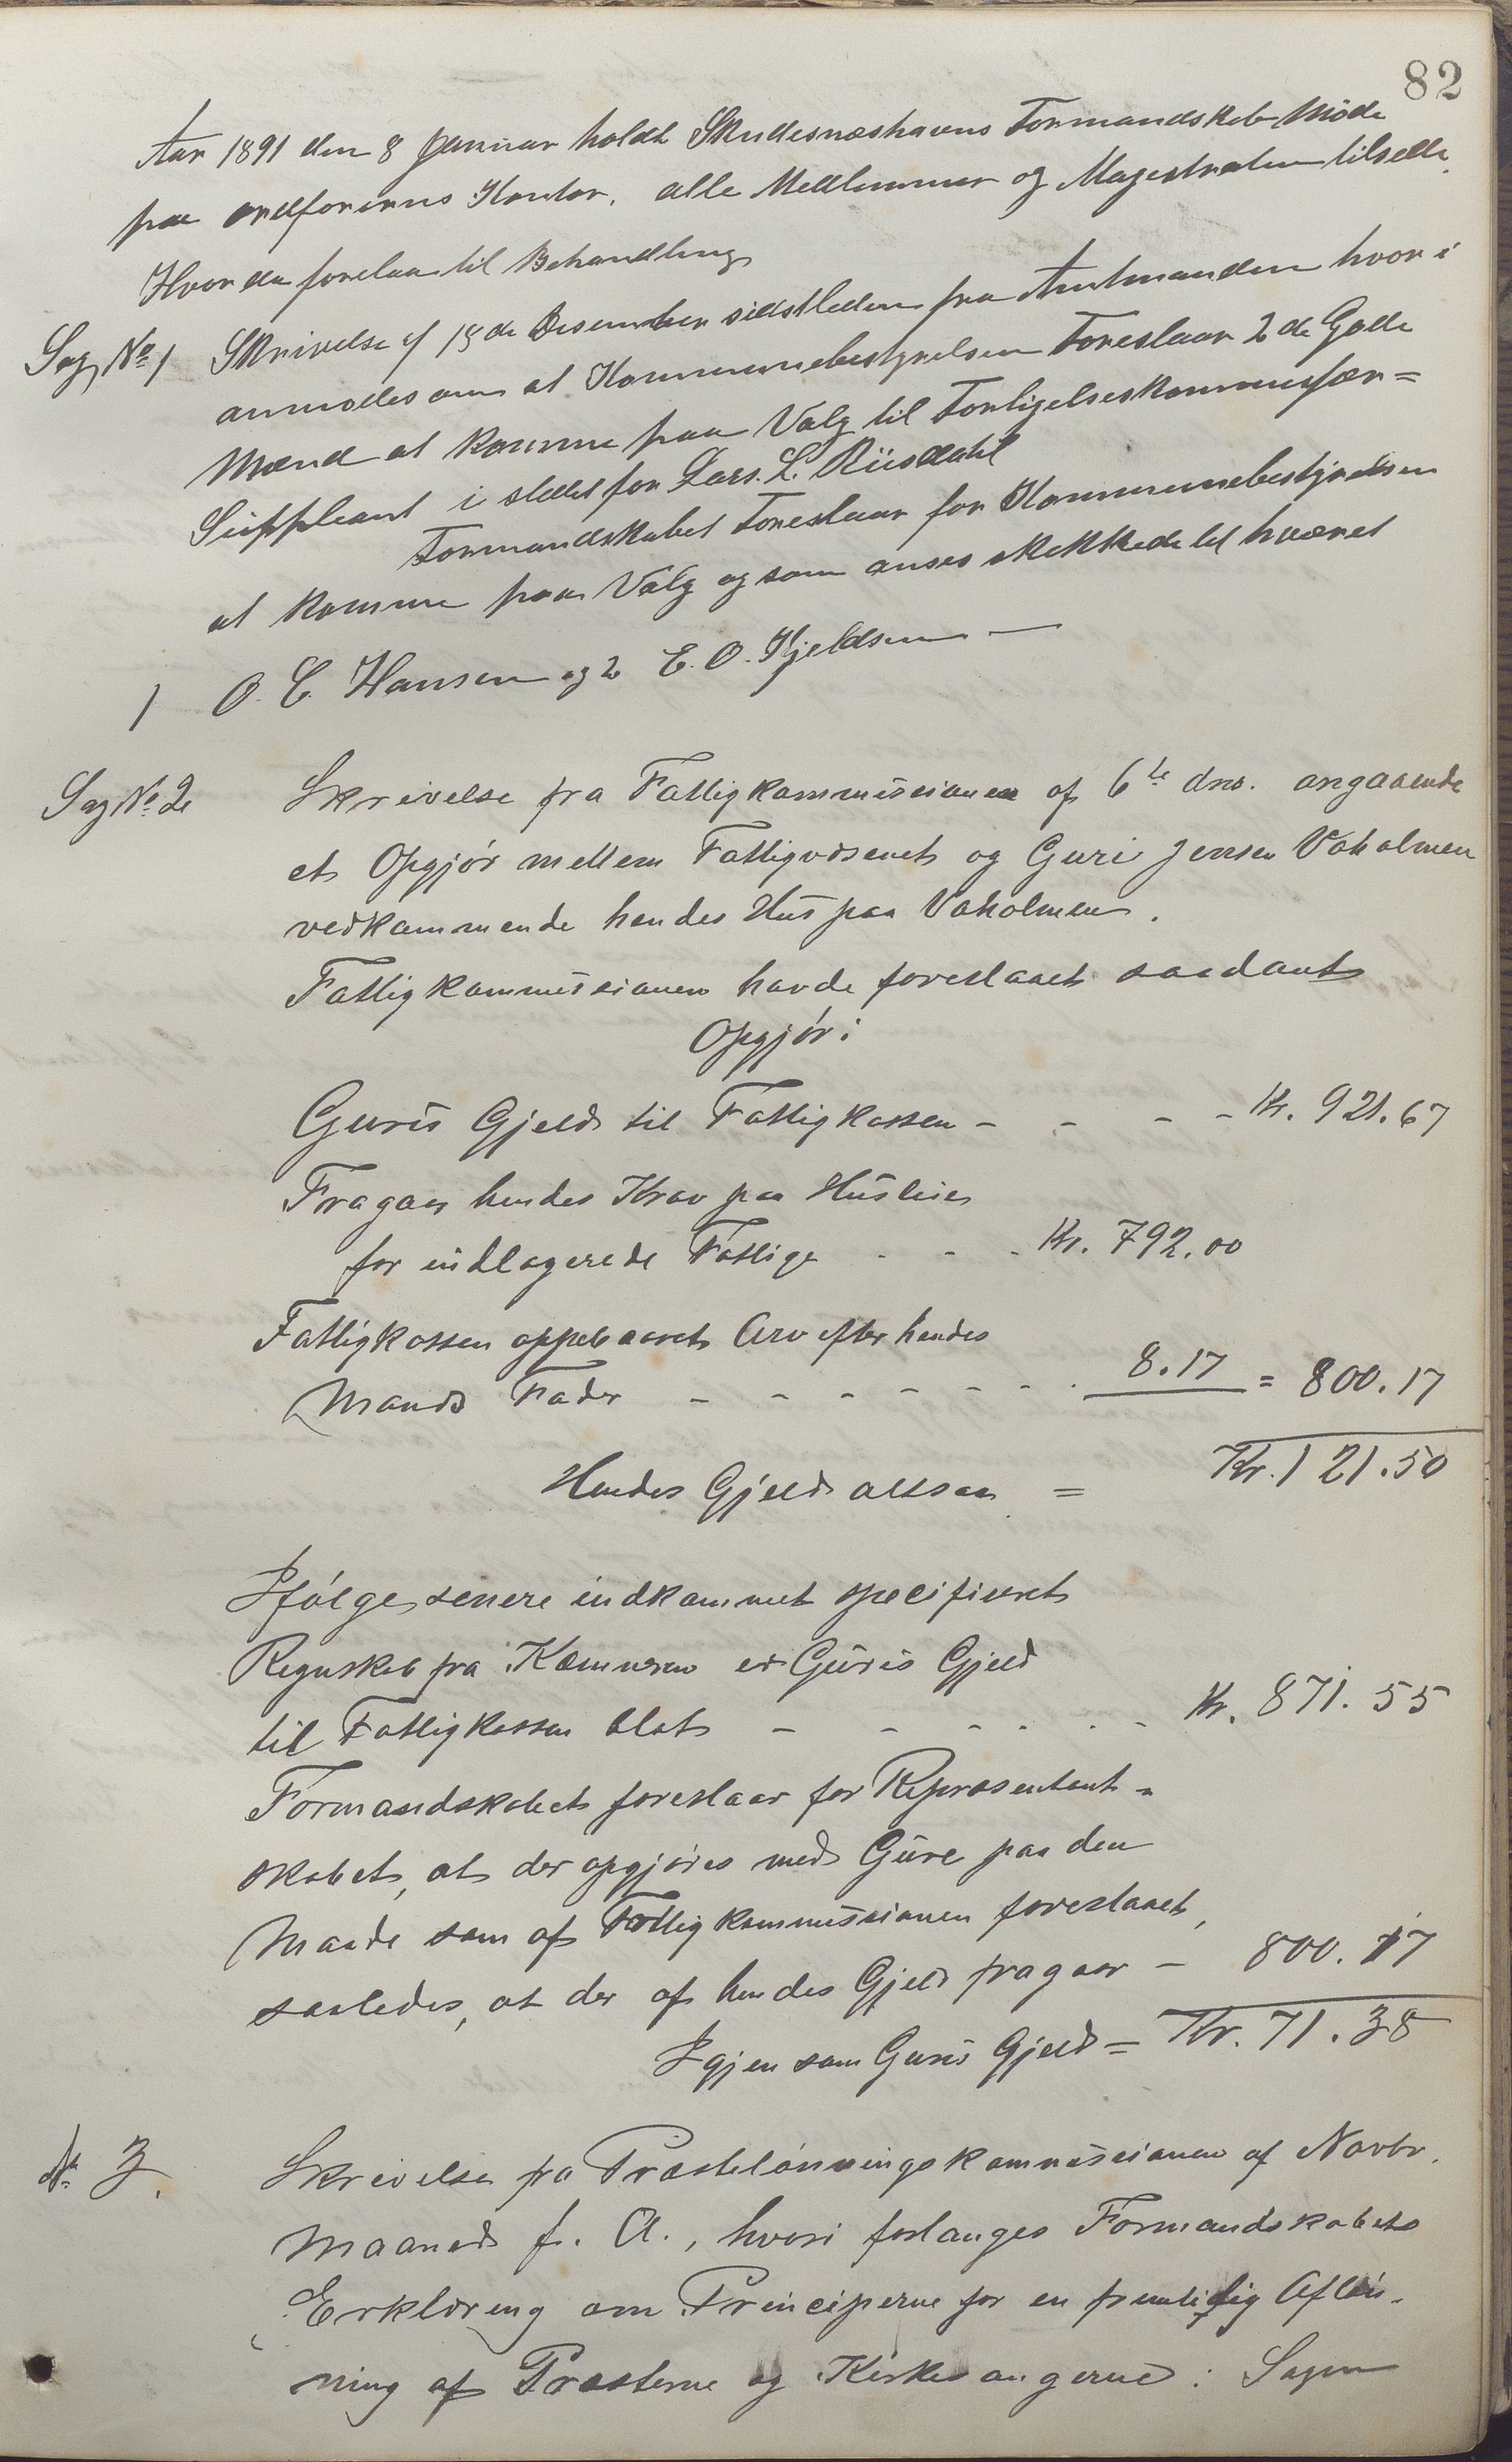 82
Aar 1891 den 8 Januar holdt Skudesnæshavns Formandskab Møde
paa ordførerens Kontor. alle Medlemmer og Magistraten tilstede.
Hvor da forelaa til Behandling
Sag No 1 Skrivelse af 15de Desember sidstleden fra Amtmanden hvor i
anmodes om at Kommunebestyrelsen Foreslaar 2de Gode
Mænd at komme paa Valg til Forligelseskommisær=
Suppleant i stedet for Lars. L. Riisdahl
Formandskabet Foreslaar for Kommunebestyrelsen
at komme paa Valg og som anses skikkede til hværvet
1 O. C. Hansen og 2 E. O. Kjeldsen —
Sag No 2 Skrivelse fra Fattigkommissionen af 6te dns. angaaende
et Opgjør mellem Fattigvæsenet og Guri Jensen Vaholmen
vedkommende hendes Hus paa Vaholmen.
Fattigkommissionen havde foreslaaet saadant
Opgjør:
Guris Gjeld til Fattigkassen - - - - Kr. 921.67
Fragaar hendes Krav paa Husleie
for indlogerede Fattige - - - Kr. 792.00
Fattigkassen oppebaaret Arv efter hendes
Mands Fader - - - - - - - 8.17 = 800.17
Hendes Gjeld altsaa = Kr. 121.50
Ifølge senere indkommet specifiseret
Regnskab fra Kæmneren er Guris Gjeld
til Fattigkassen blot - - - - - - Kr. 871.55
Formandskabet foreslaar for Repræsentant-
skabet, at der opgjøres med Guri paa den
Maade som af Fattigkommissionen foreslaaet,
saaledes, at der af hendes Gjeld fragaar - 800.17
Igjen som Guris Gjeld = Kr. 71.38
No 3. Skrivelse fra Præstelønningskommissionen af Novbr.
Maaned f. A., hvori forlanges Formandskabets
Erklæring om Principerne for en fremtidig Afløn-
ning af Præsterne og Kirkesangerne: Sagen